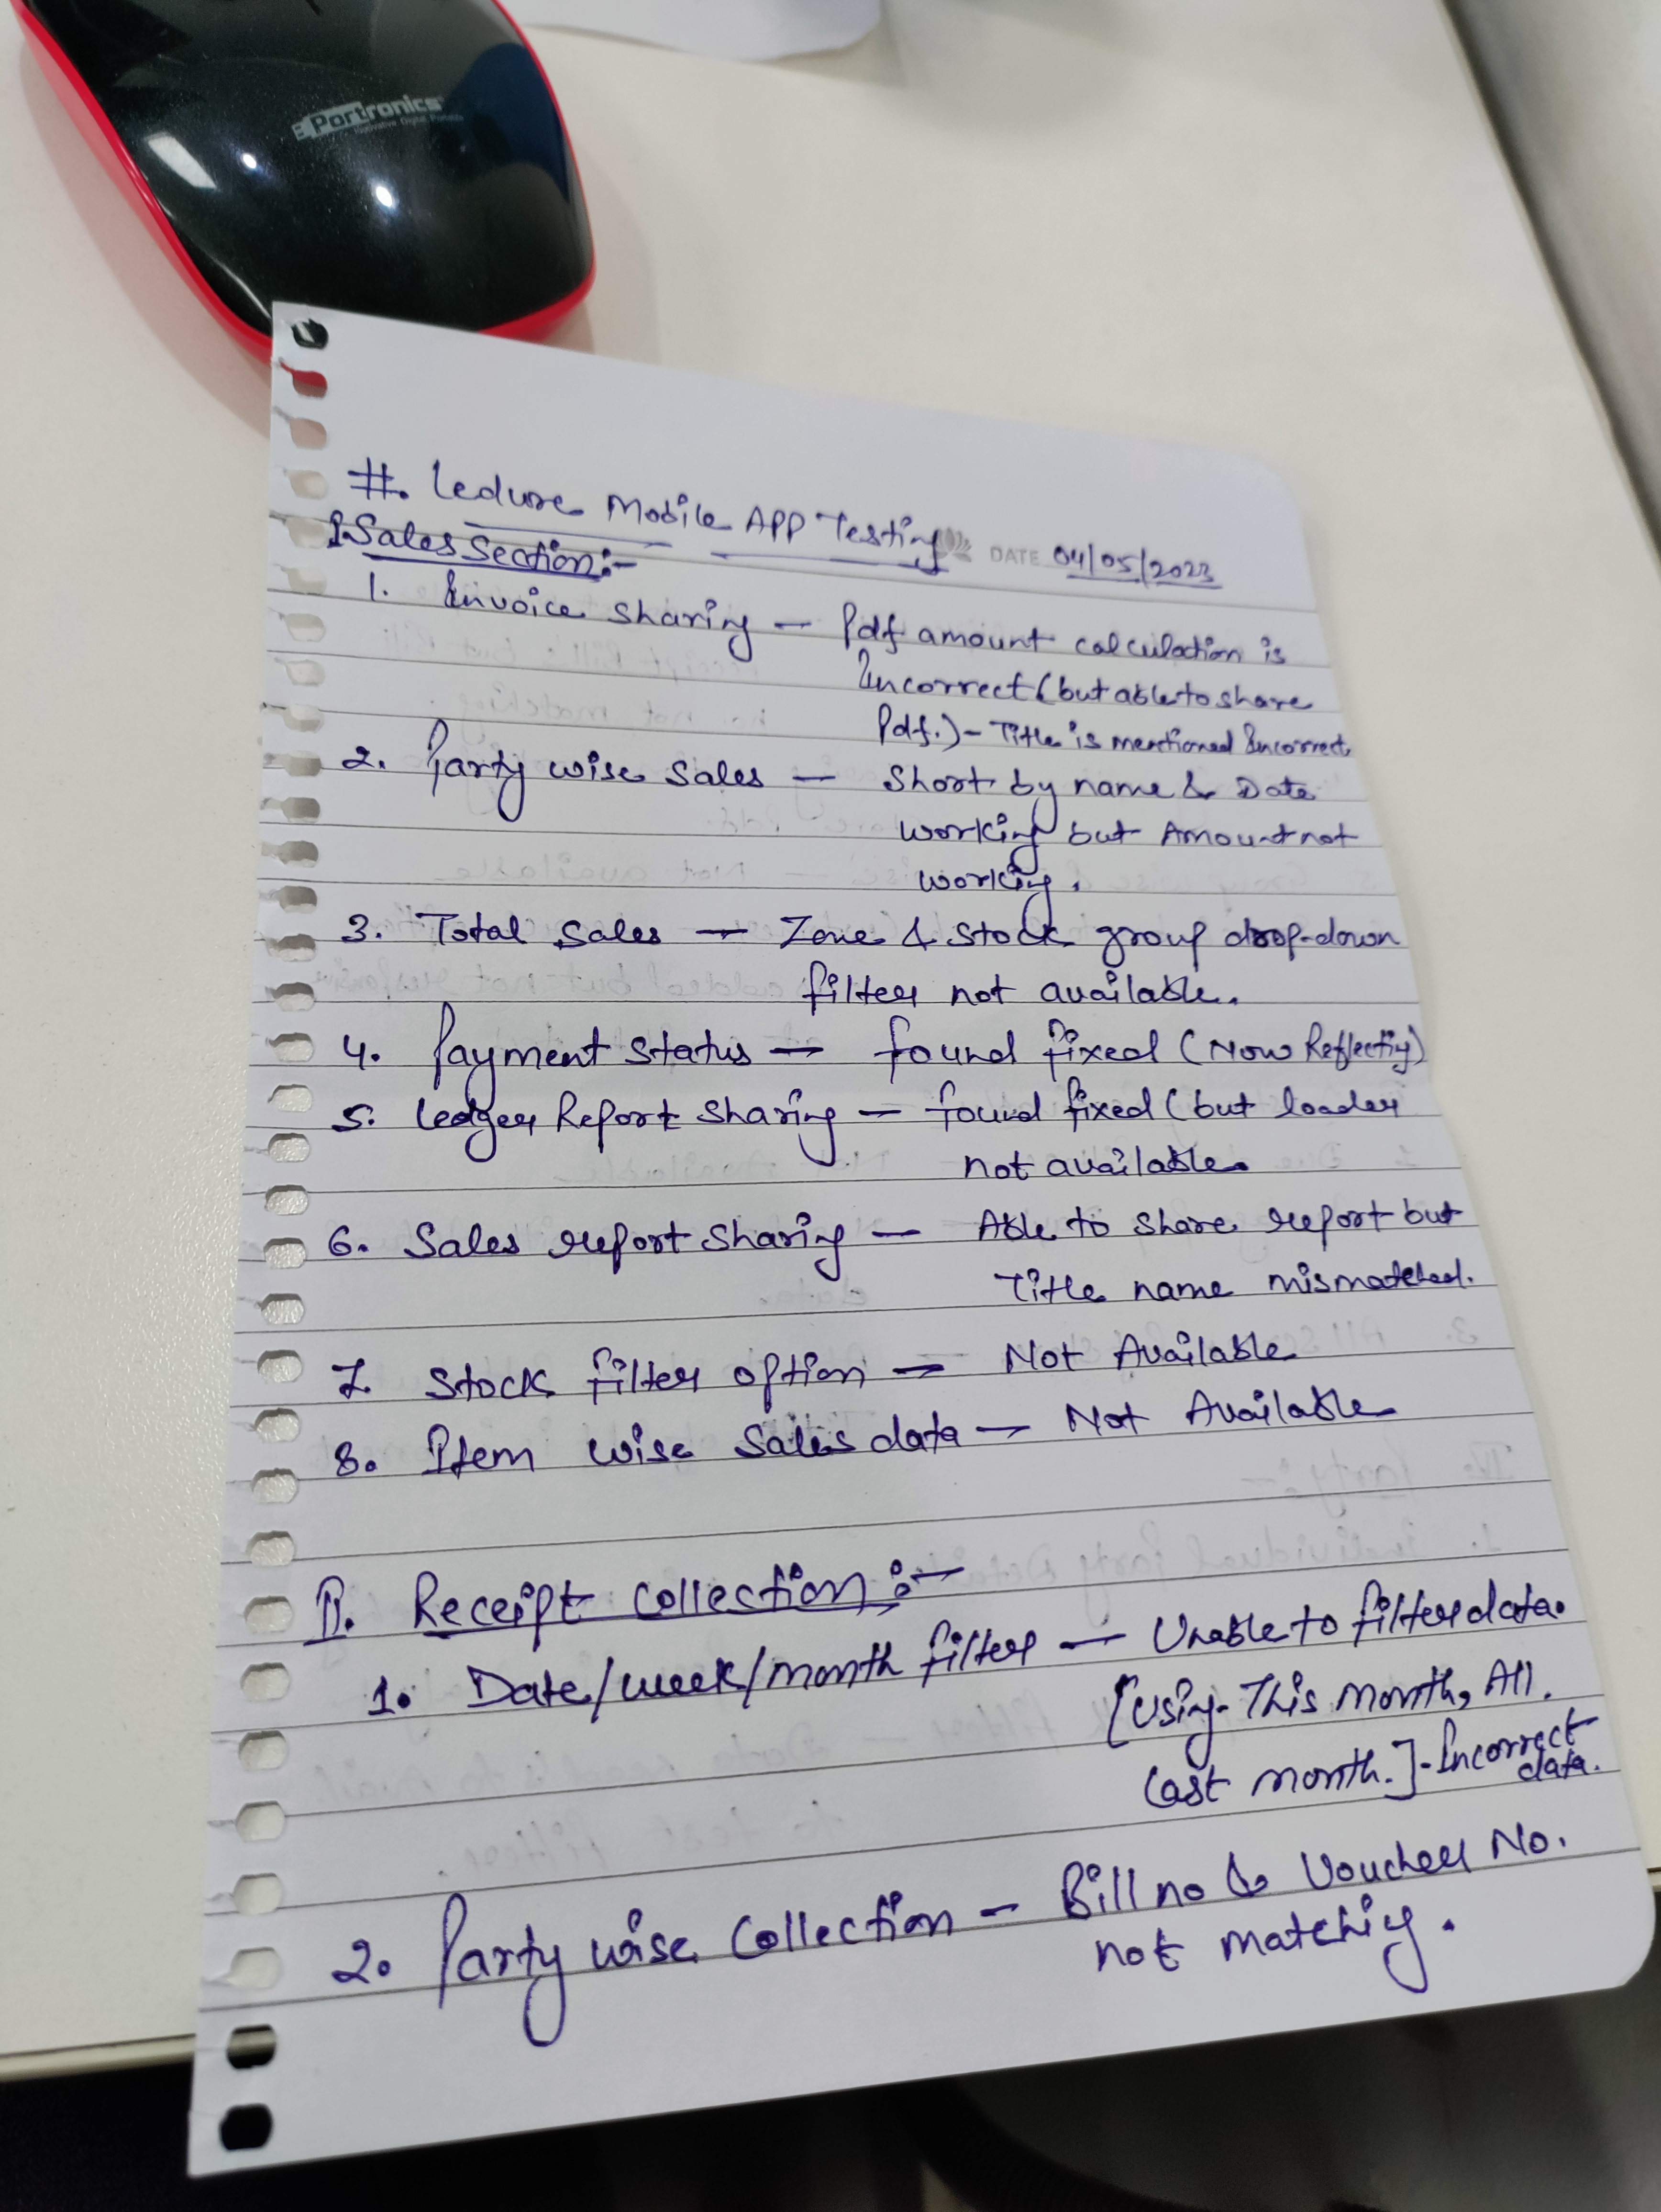 Portronics
#. Ledure Mobile APP Testing
DATE 04/05/2023
I Sales Section:-
1. Invoice Sharing - Pdf amount calculation is
Incorrect (but able to share
Pdf.) - Title is mentioned Incorrect
2. Party wise Sales - Short by name & Date
working but Amount not
working.
3. Total Sales - Zone & Stock group drop-down
filter not available.
4. Payment Status - found fixed (Now Reflecting)
5. Ledger Report Sharing - found fixed (but loader
not available.
6. Sales report Sharing - Able to share report but
Title name mismatched.
7. Stock filter option - Not Available
8. Item wise Sales data - Not Available
II. Receipt Collection:-
1. Date/week/month filter - Unable to filter data.
[Using - This month, All.
Last month.] - Incorrect
data.
2. Party wise Collection - Bill no & Voucher No.
not matching.